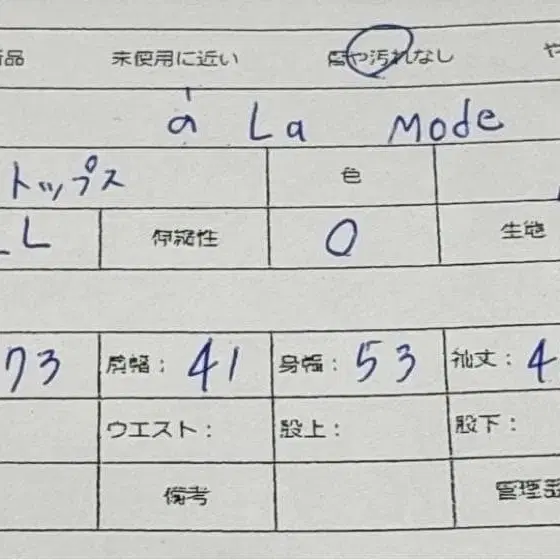 品 未使用に近い 傷や汚れなし や
á La Mode
トップス 色
LL 伸縮性 0 生地
73 肩幅: 41 身幅: 53 袖丈: 4
ウエスト: 股上: 股下:
備考 管理番